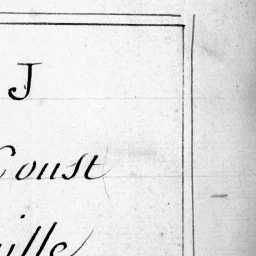 J
Const
ille